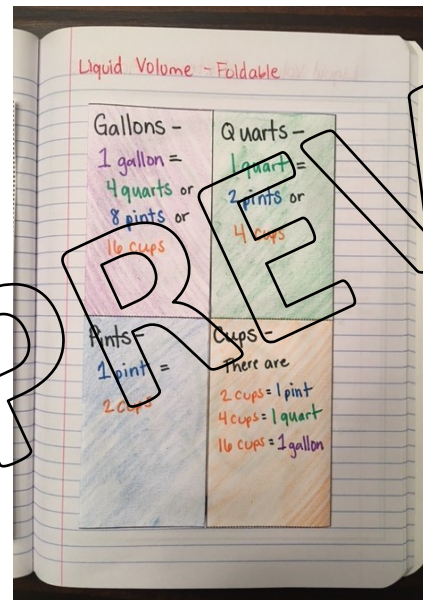 Liquid Volume - Foldable
Gallons -
1 gallon =
4 quarts or
8 pints or
16 cups
Quarts -
1 quart =
2 pints or
4 cups
Pints -
1 pint =
2 cups
Cups -
There are
2 cups = 1 pint
4 cups = 1 quart
16 cups = 1 gallon
PREV